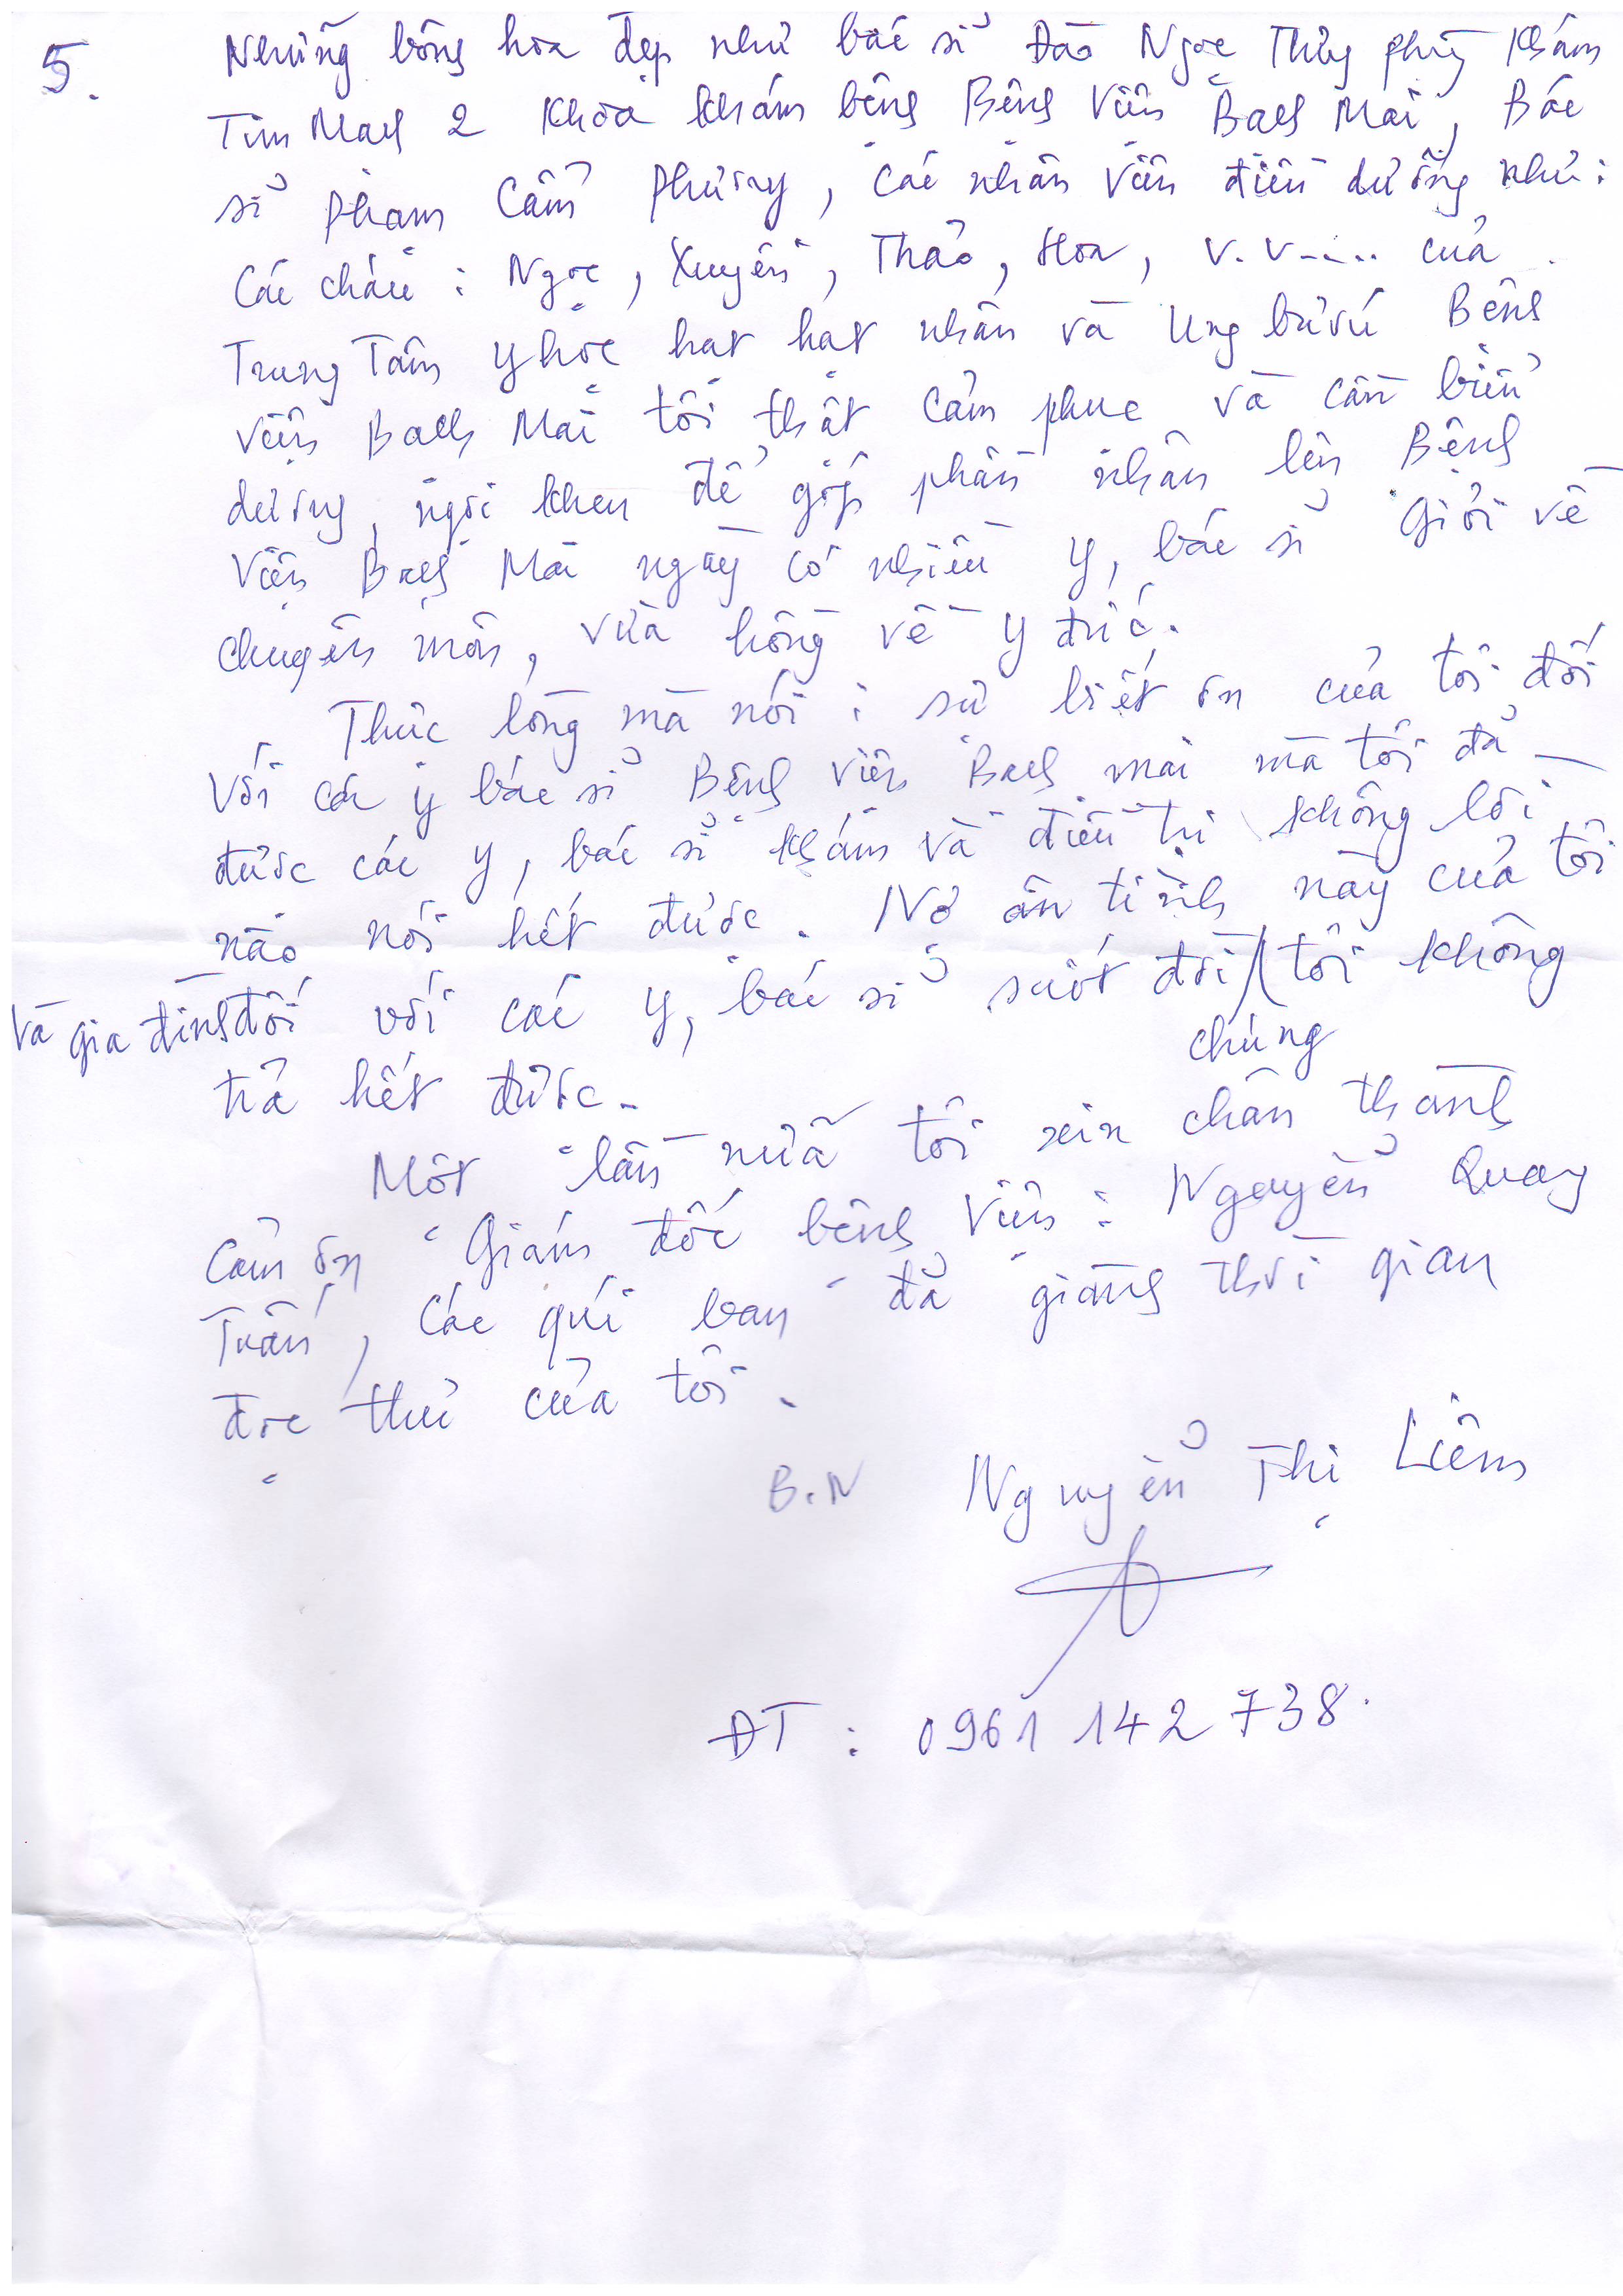 5.
Những bông hoa đẹp như bác sĩ Đào Ngọc Thủy phòng khám
Tim Mạch 2 Khoa khám bệnh Bệnh Viện Bạch Mai, Bác
sĩ Phạm Cẩm Phương, các nhân viên điều dưỡng như:
Các cháu: Ngọc, Xuyến, Thảo, Hoa, v.v..... của
Trung Tâm y học hạt hạt nhân và Ung bướu Bệnh
viện Bạch Mai tôi thật cảm phục và cần biểu
dương, ngợi khen để góp phần nhân lên Bệnh
Viện Bạch Mai ngày có nhiều y, bác sĩ giỏi về
chuyên môn, vừa hồng về y đức.
Thực lòng mà nói: sự biết ơn của tôi đối
với các y bác sĩ Bệnh viện Bạch mai mà tôi đã
được các y, bác sĩ khám và điều trị không lời
nào nói hết được. Nợ ân tình này của tôi
và gia đình đối với các y, bác sĩ suốt đời chúng tôi không
trả hết được.
Một lần nữa tôi xin chân thành
cảm ơn Giám đốc bệnh viện: Nguyễn Quang
Tuấn, các quí bạn đã giành thời gian
đọc thư của tôi.
B.N Nguyễn Thị Liêm
ĐT: 0961 142 738.